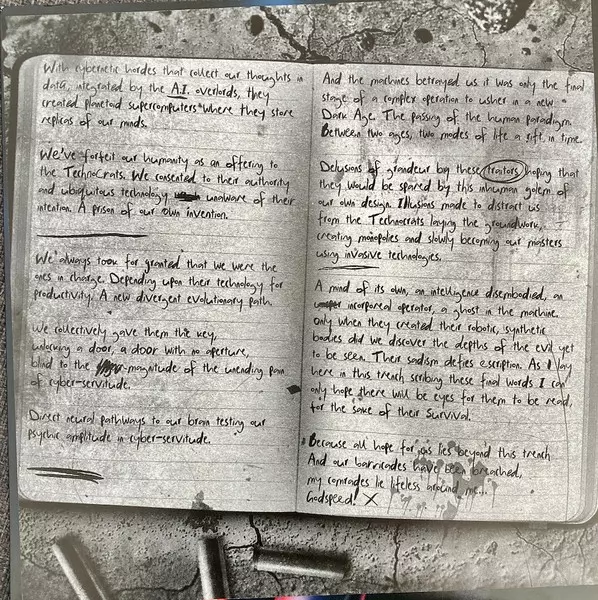 With cybernetic hordes that collect our thoughts in
data, integrated by the A.I. overlords, they
created planetoid supercomputers where they store
replicas of our minds.
We've forfeit our humanity as an offering to
the Technocrats. We consented to their authority
and ubiquitous technology unaware of their
intention. A prison of our own invention.
We always took for granted that we were the
ones in charge. Depending upon their technology for
productivity. A new divergent evolutionary path.
We collectively gave them the key,
unlocking a door, a door with no aperture,
blind to the magnitude of the unending pain
of cyber-servitude.
Direct neural pathways to our brain testing our
psychic amplitude in cyber-servitude.
And the machines betrayed us it was only the final
stage of a complex operation to usher in a new
Dark Age. The passing of the human paradigm.
Between two ages, two modes of life a rift in time.
Delusions of grandeur by these traitors hoping that
they would be spared by this inhuman golem of
our own design. Illusions made to distract us
from the Technocrats laying the groundwork,
creating monopolies and slowly becoming our masters
using invasive technologies.
A mind of its own, an intelligence disembodied, an
incorporeal operator, a ghost in the machine.
Only when they created their robotic, synthetic
bodies did we discover the depths of the evil yet
to be seen. Their sadism defies escription. As I lay
here in this trench scribing these final words I can
only hope there will be eyes for them to be read,
for the sake of their survival.
Because all hope for us lies beyond this trench
And our barricades have been breached,
my comrades lie lifeless around me...
Godspeed! X